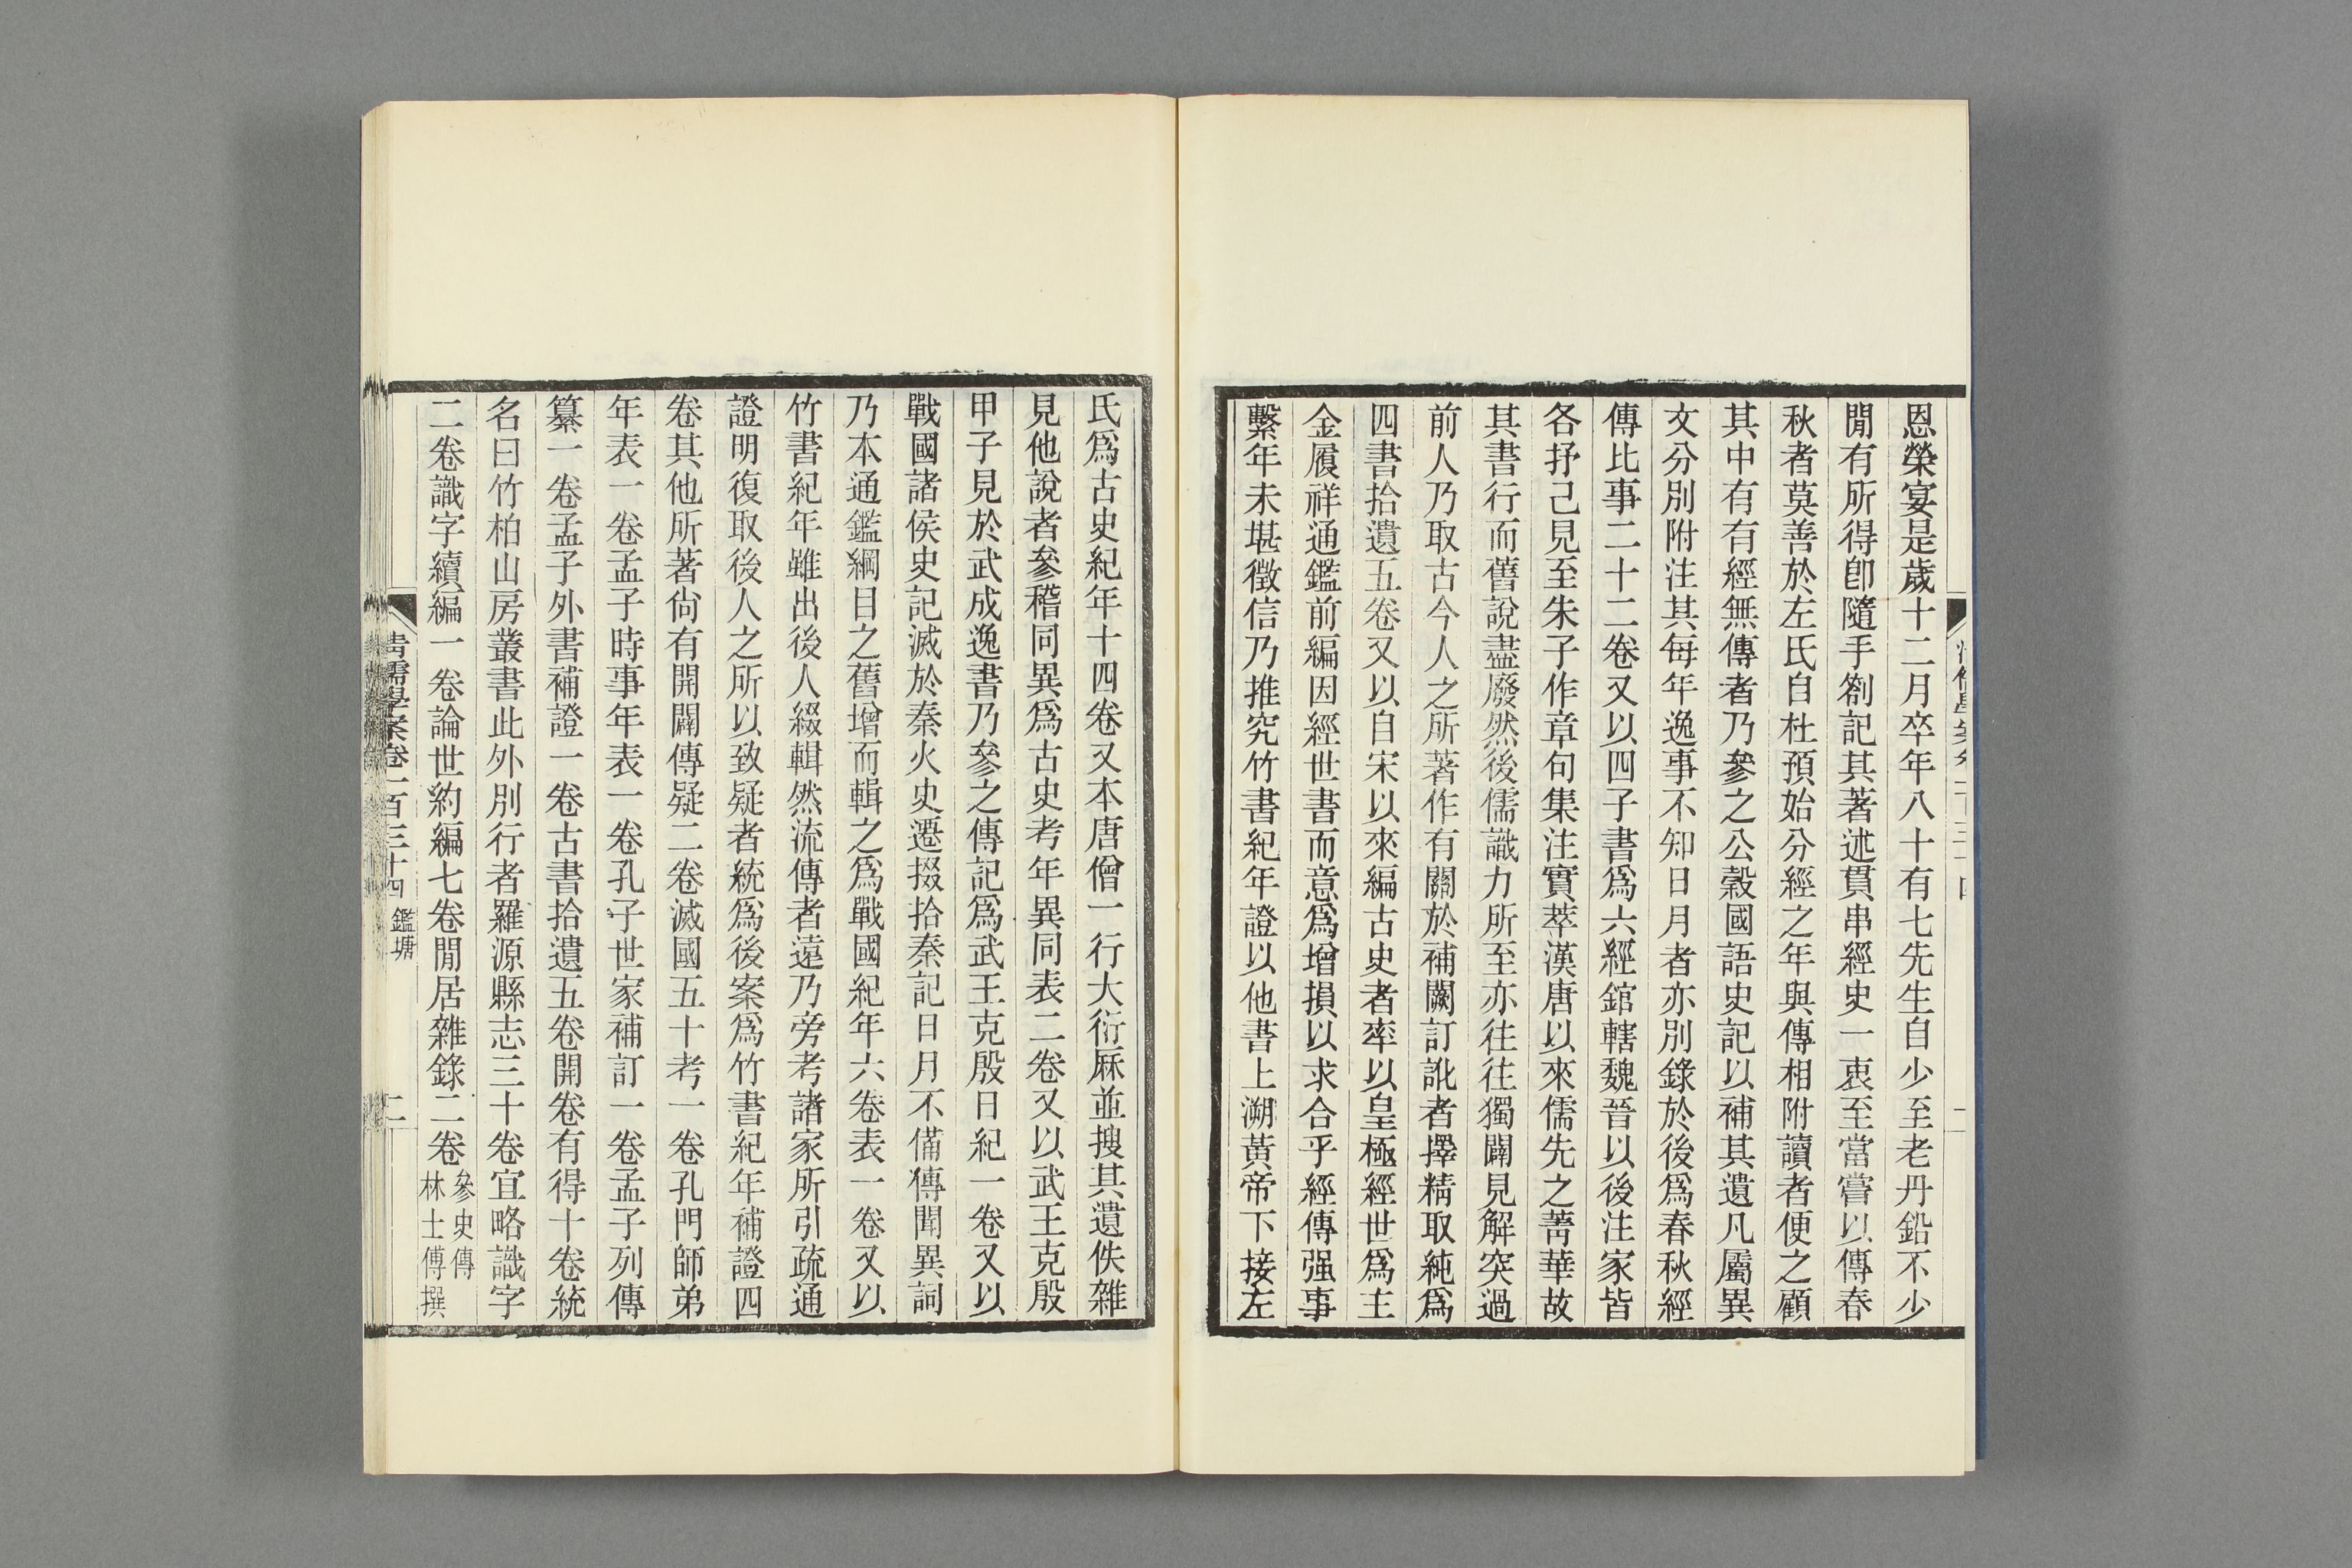 恩榮宴是歲十二月卒年八十有七先生自少至老丹鉛不少
閒有所得卽隨手劄記其著述貫串經史一衷至當嘗以傳春
秋者莫善於左氏自杜預始分經之年與傳相附讀者便之顧
其中有有經無傳者乃參之公穀國語史記以補其遺凡屬異
文分別附注其每年逸事不知日月者亦別錄於後爲春秋經
傳比事二十二卷又以四子書爲六經錧轄魏晉以後注家皆
各抒己見至朱子作章句集注實萃漢唐以來儒先之菁華故
其書行而舊說盡廢然後儒識力所至亦往往獨闢見解突過
前人乃取古今人之所著作有關於補闕訂訛者擇精取純爲
四書拾遺五卷又以自宋以來編古史者率以皇極經世爲主
金履祥通鑑前編因經世書而意爲增損以求合乎經傳强事
繫年未堪徵信乃推究竹書紀年證以他書上溯黃帝下接左
氏爲古史紀年十四卷又本唐僧一行大衍厤並搜其遺佚雜
見他說者參稽同異爲古史考年異同表二卷又以武王克殷
甲子見於武成逸書乃參之傳記爲武王克殷日紀一卷又以
戰國諸侯史記滅於秦火史遷掇拾秦記日月不備傳聞異詞
乃本通鑑綱目之舊增而輯之爲戰國紀年六卷表一卷又以
竹書紀年雖出後人綴輯然流傳者遠乃旁考諸家所引疏通
證明復取後人之所以致疑者統爲後案爲竹書紀年補證四
卷其他所著尙有開闢傳疑二卷滅國五十考一卷孔門師弟
年表一卷孟子時事年表一卷孔子世家補訂一卷孟子列傳
纂一卷孟子外書補證一卷古書拾遺五卷開卷有得十卷統
名曰竹柏山房叢書此外別行者羅源縣志三十卷宜略識字
二卷識字續編一卷論世約編七卷閒居雜錄二卷參史傳
林士傅撰
清儒學案卷一百三十四 鑑塘
二